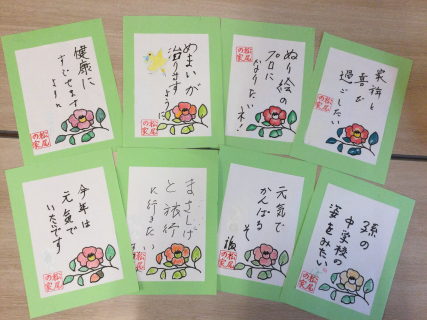 健康に
すごせます
ように
めまいが
治ります
ように
ぬり絵の
プロに
なりたいネ!
家族と
喜び
過ごしたい
今年は
元気で
いたいです
まさしげ
と旅行
に行きたい
元気で
がんばるぞ
孫の
中学校の
姿をみたい
松尾の家
松尾の家
松尾の家
松尾の家
松尾の家
松尾の家
松尾の家
松尾の家